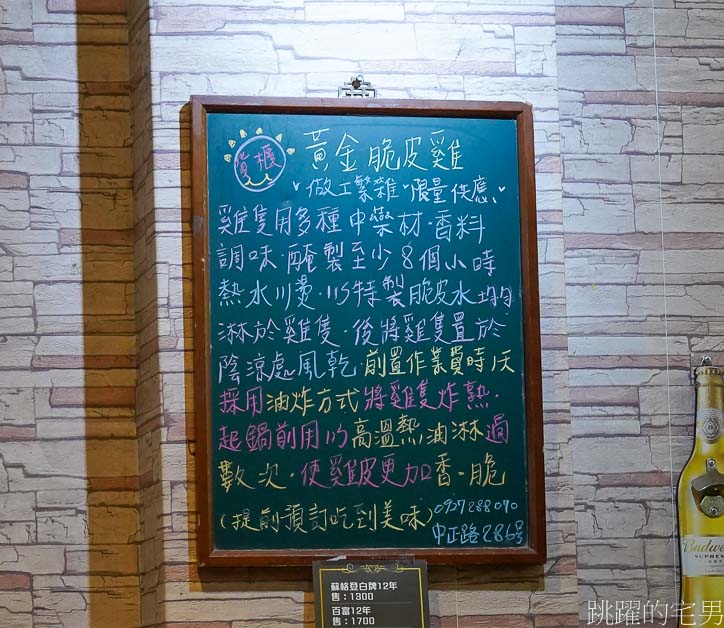 貨櫃
黃金脆皮雞
"做工繁雜"限量供應"
雞隻用多種中藥材.香料
調味.醃製至少8個小時
熱水川燙.以特製脆皮水均勻
淋於雞隻.後將雞隻置於
陰涼處風乾.前置作業費時1天
採用油炸方式將雞隻炸熟.
起鍋前用以高溫熱油淋過
數次.使雞皮更加香.脆
(提前預訂吃到美味)
0927288070
中正路286號
蘇格登白牌12年
售:1300
百富12年
售:1700
Budweiser
SUPREME
跳躍的宅男